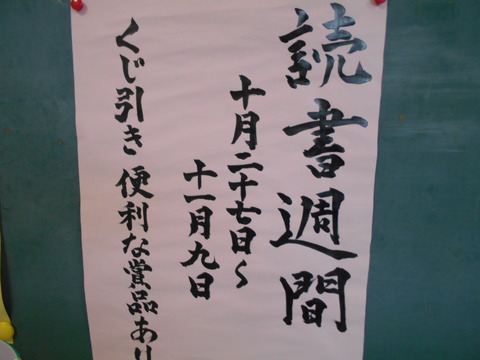 読書週間
十月二十七日〜
十一月九日
くじ引き 便利な賞品あり